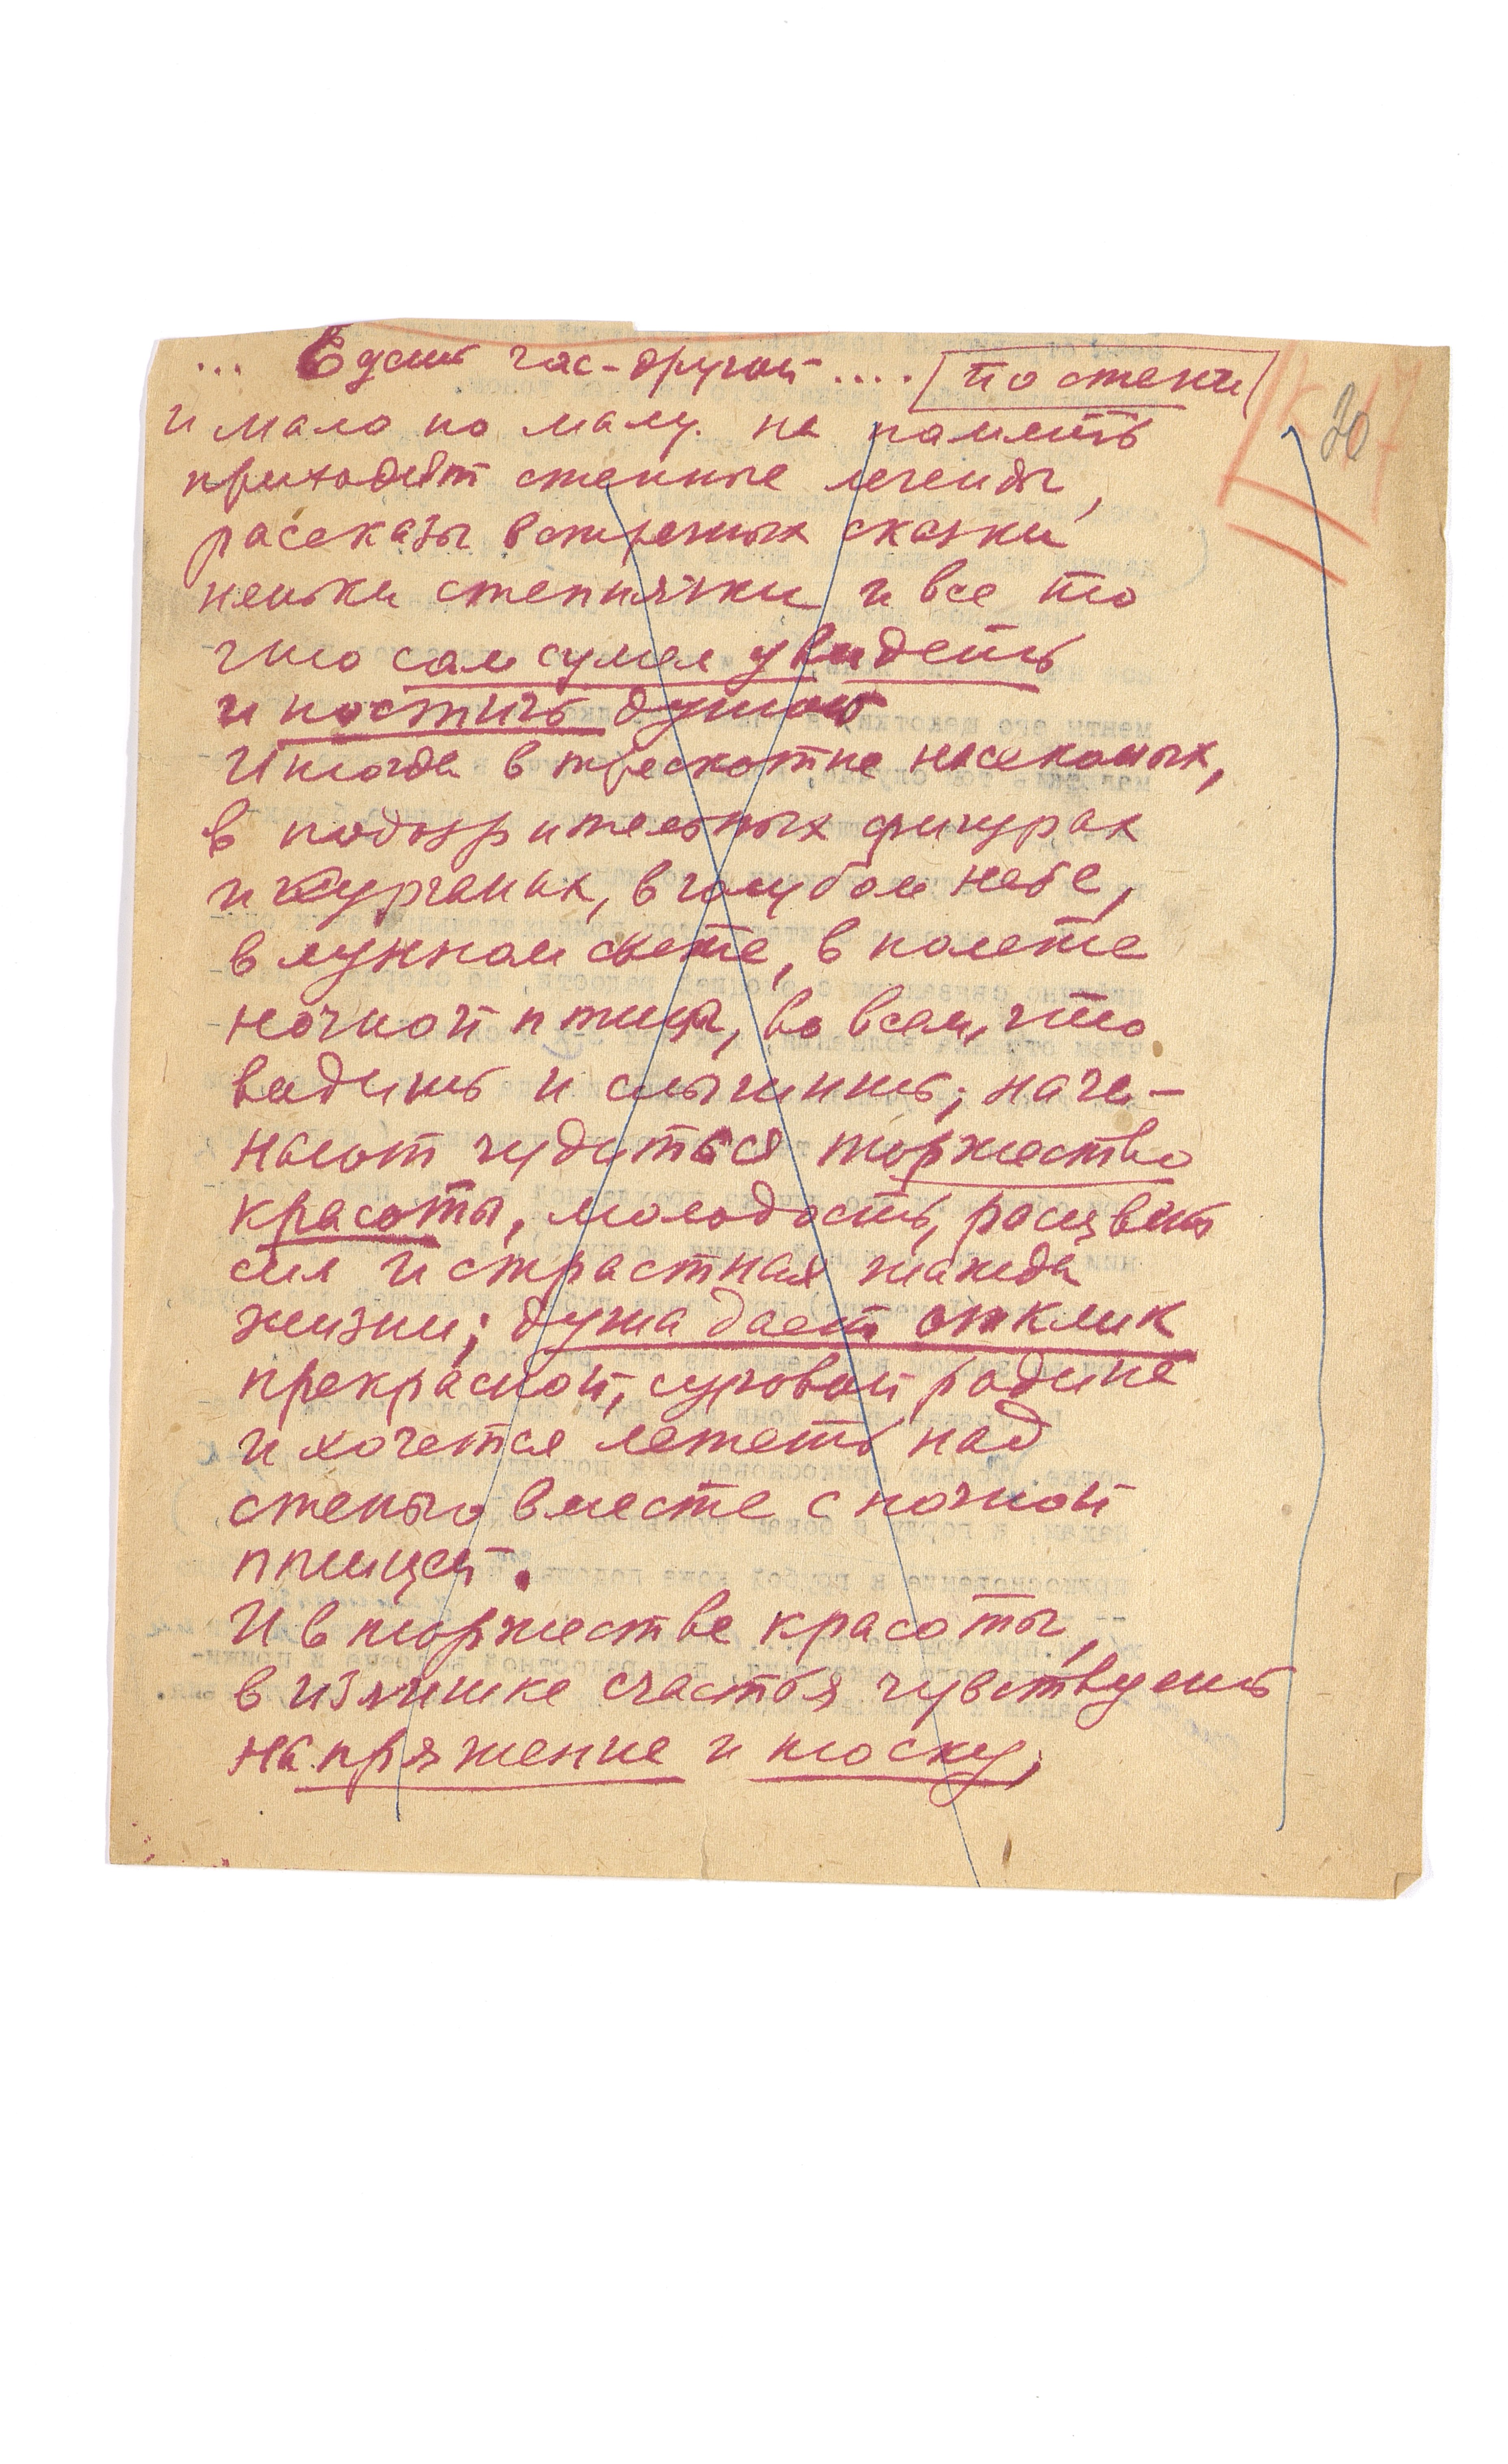 ... Едешь час-другой .... по степи
20
и мало по малу. на память
приходят степные легенды,
рассказы встречных сказки
неньки степнячки и все то
что сам сумел увидеть
и постичь душой
Иногда в трескотне насекомых,
в подозрительных фигурах
и курганах, в голубом небе,
в лунном свете, в полете
ночной птицы, во всем, что
видишь и слышишь; начи-
нают чудиться торжество
красоты, молодость, расцвет
сил и страстная жажда
жизни; душа дает отклик
прекрасной, суровой родине
и хочется лететь над
степью вместе с ночной
птицей.
И в торжестве красоты,
в излишке счастья чувствуешь
напряжение и тоску,